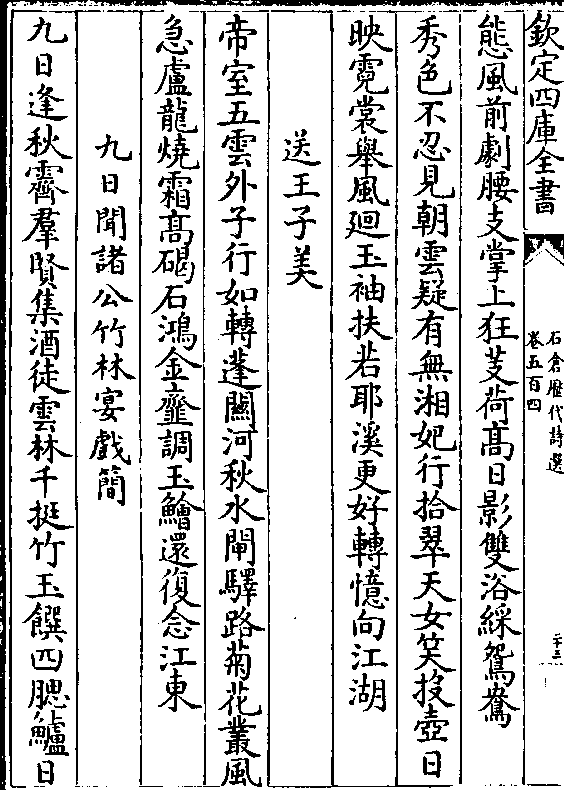 欽定四庫全書
石倉歷代詩選
卷五百四
二十三
態風前劇腰支掌上狂芰荷髙日影雙浴綵鴛鴦
秀色不忍見朝雲疑有無湘妃行拾翠天女笑投壺日
映霓裳舉風廻玉袖扶若耶溪更好轉憶向江湖
送王子美
帝室五雲外子行如轉蓬關河秋水閘驛路菊花叢風
急盧龍燒霜髙碣石鴻金虀調玉鱠還復念江東
九日聞諸公竹林宴戲簡
九日逢秋霽羣賢集酒徒雲林千挺竹玉饌四腮鱸日